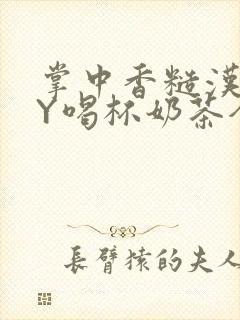 掌中香糙漢
Y喝杯奶茶
長臂猿的夫人